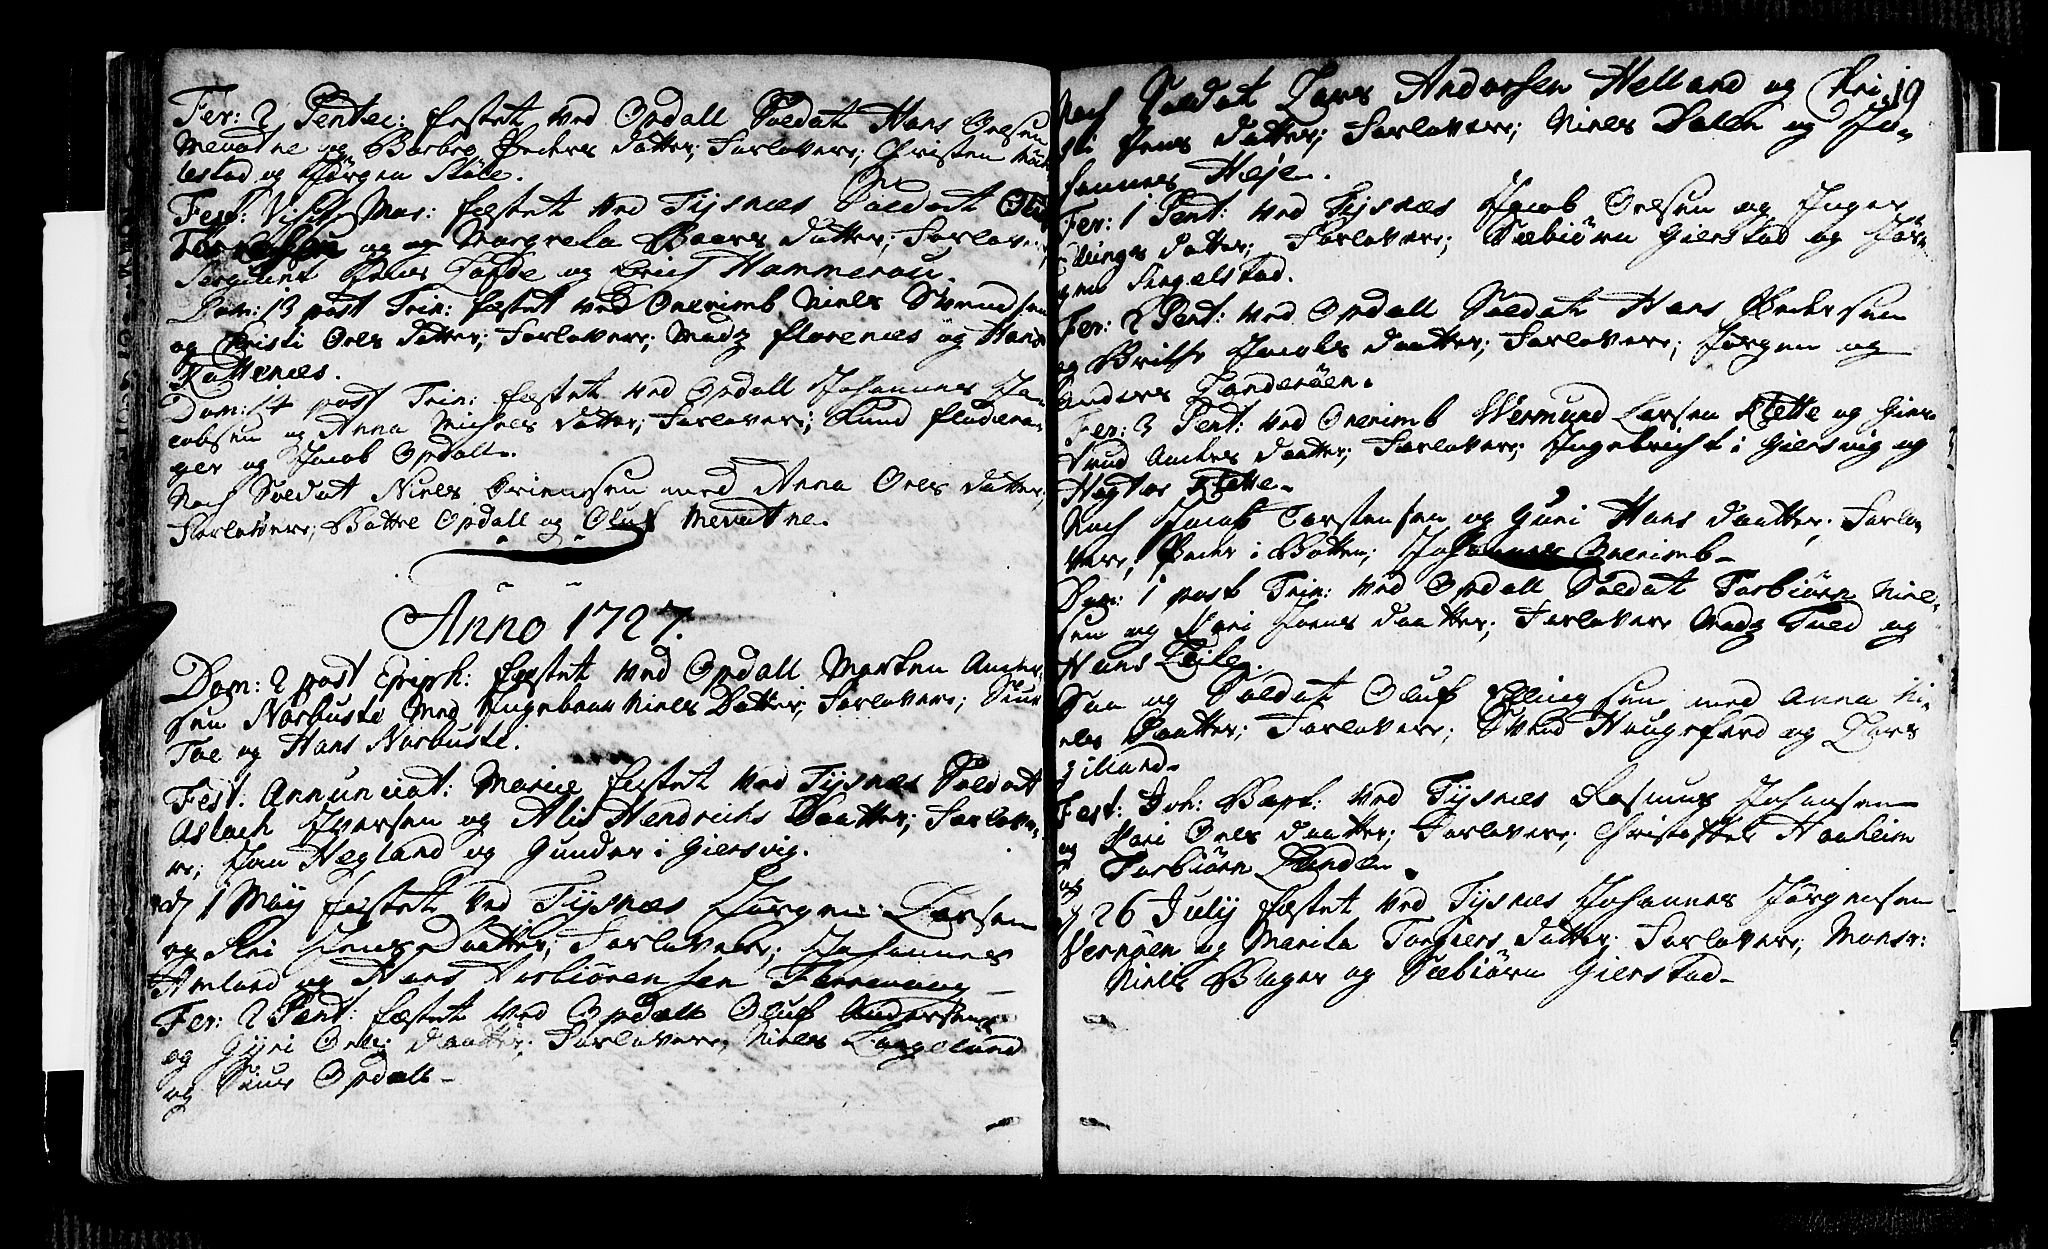 Fer: 2 Pentec: fæstet ved Opdall Soldat Hans Oelsen
Mevatne og Barbro Peders datter; Forlovere; Christen
lestad og Jørgen Skaae.
Fest: Visit: Mar: fæstet ved Tysnæs Soldat
og Margreta Baars datter; Forlover;
Sergiant Jens Tofte og Erich Hammerøou.
Dom: 13 post Trin: fæstet ved Onerimb Niels Amundsen
og Kristi Oels datter; Forlovere; Madz Florenæs og Hans
Kattenæs.
Dom: 14 post Trin: fæstet ved Opdall Johannes Ja-
cobsen og Anna Michels datter; Forlovere; Knud Fluderа-
ger og Jacob Opdall.
Noch Soldat Niels Brienesen med Anna Oels datter;
Forlovere; Baltre Opdall og Oluf Mevatne.
Anno 1727.
Dom: 2 post Epiph: fæstet ved Opdall Morten Ander-
sen Norbuste med Ingeboer Niels Datter; Forlovere; Siur
Toe og Hans Norbuste.
Fest. Annunciat: Mariæ fæstet ved Tysnæs Soldat
Aslach Iversen og Alis Hendrichs Daatter; Forlove-
re; Jon Hegland og Gunder i Giersvig.
d 1 Maij fæstet ved Tysnæs Jørgen Larsen
og Siri Jens Daatter; Forlovere; Johannes
Amland og Hans Torbiørnensen Ferrevaag
Fer: 2 Pent: fæstet ved Opdall Oluf Andersen
og Gyri Oels daatter; Forlovere; Niels Langeland
og Siur Opdall
19
Noch Soldat Lars Andersen Helland og Kri-
sti Jens datter; Forlovere; Niels Dalen og Jo-
hannes Heje.
Fer: 1 Pent: ved Tysnæs Jacob Oelsen og Inger
Ellings datter; Forlovere; Sæbiørn Gierstad og Jør-
gen Singelstad.
Fer: 2 Pent: ved Opdall Soldat Hans Pedersen
og Brithe Jacobs daatter; Forlovere; Jørgen og
Anders Landerøen.
Fer: 3 Pent: ved Onerimb Wermund Larsen Klette og Gier-
trud Anders daatter; Forlovere; Ingebricht i Giersvig og
Hegtor Klette
Noch Jacob Torstensen og Guri Hans daatter; Forlo-
vere; Peder i Botten; Johannes Onerimb
Dom: 1 post Trin: ved Opdall Soldat Torbiørn Niel-
sen og Kari Joens daatter; Forlovere Madz Tued og
Hans Teile.
Saa og Soldat Oluf Ellingsen med Anna Ni-
els Daatter; Forlovere; Svend Haugsfærd og Lars
gilland
Fest: Joh: Bapt: ved Tysnæs Rasmus Johansen
og Kari Oels daatter; Forlovere; Christoffer Haaheim
og Torbiørn Lunde.
d 26 July fæstet ved Tysnæs Johannes Jørgensen
Vernøen og Marita Torgiers datter; Forlovere; Monsr:
Niels Bager og Sæbiørn Gierstad